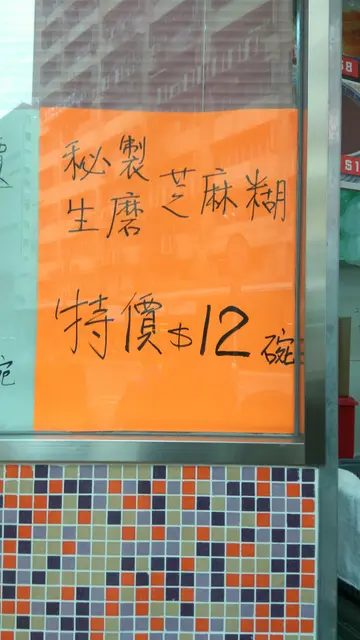 秘製
生磨芝麻糊
特價$12碗